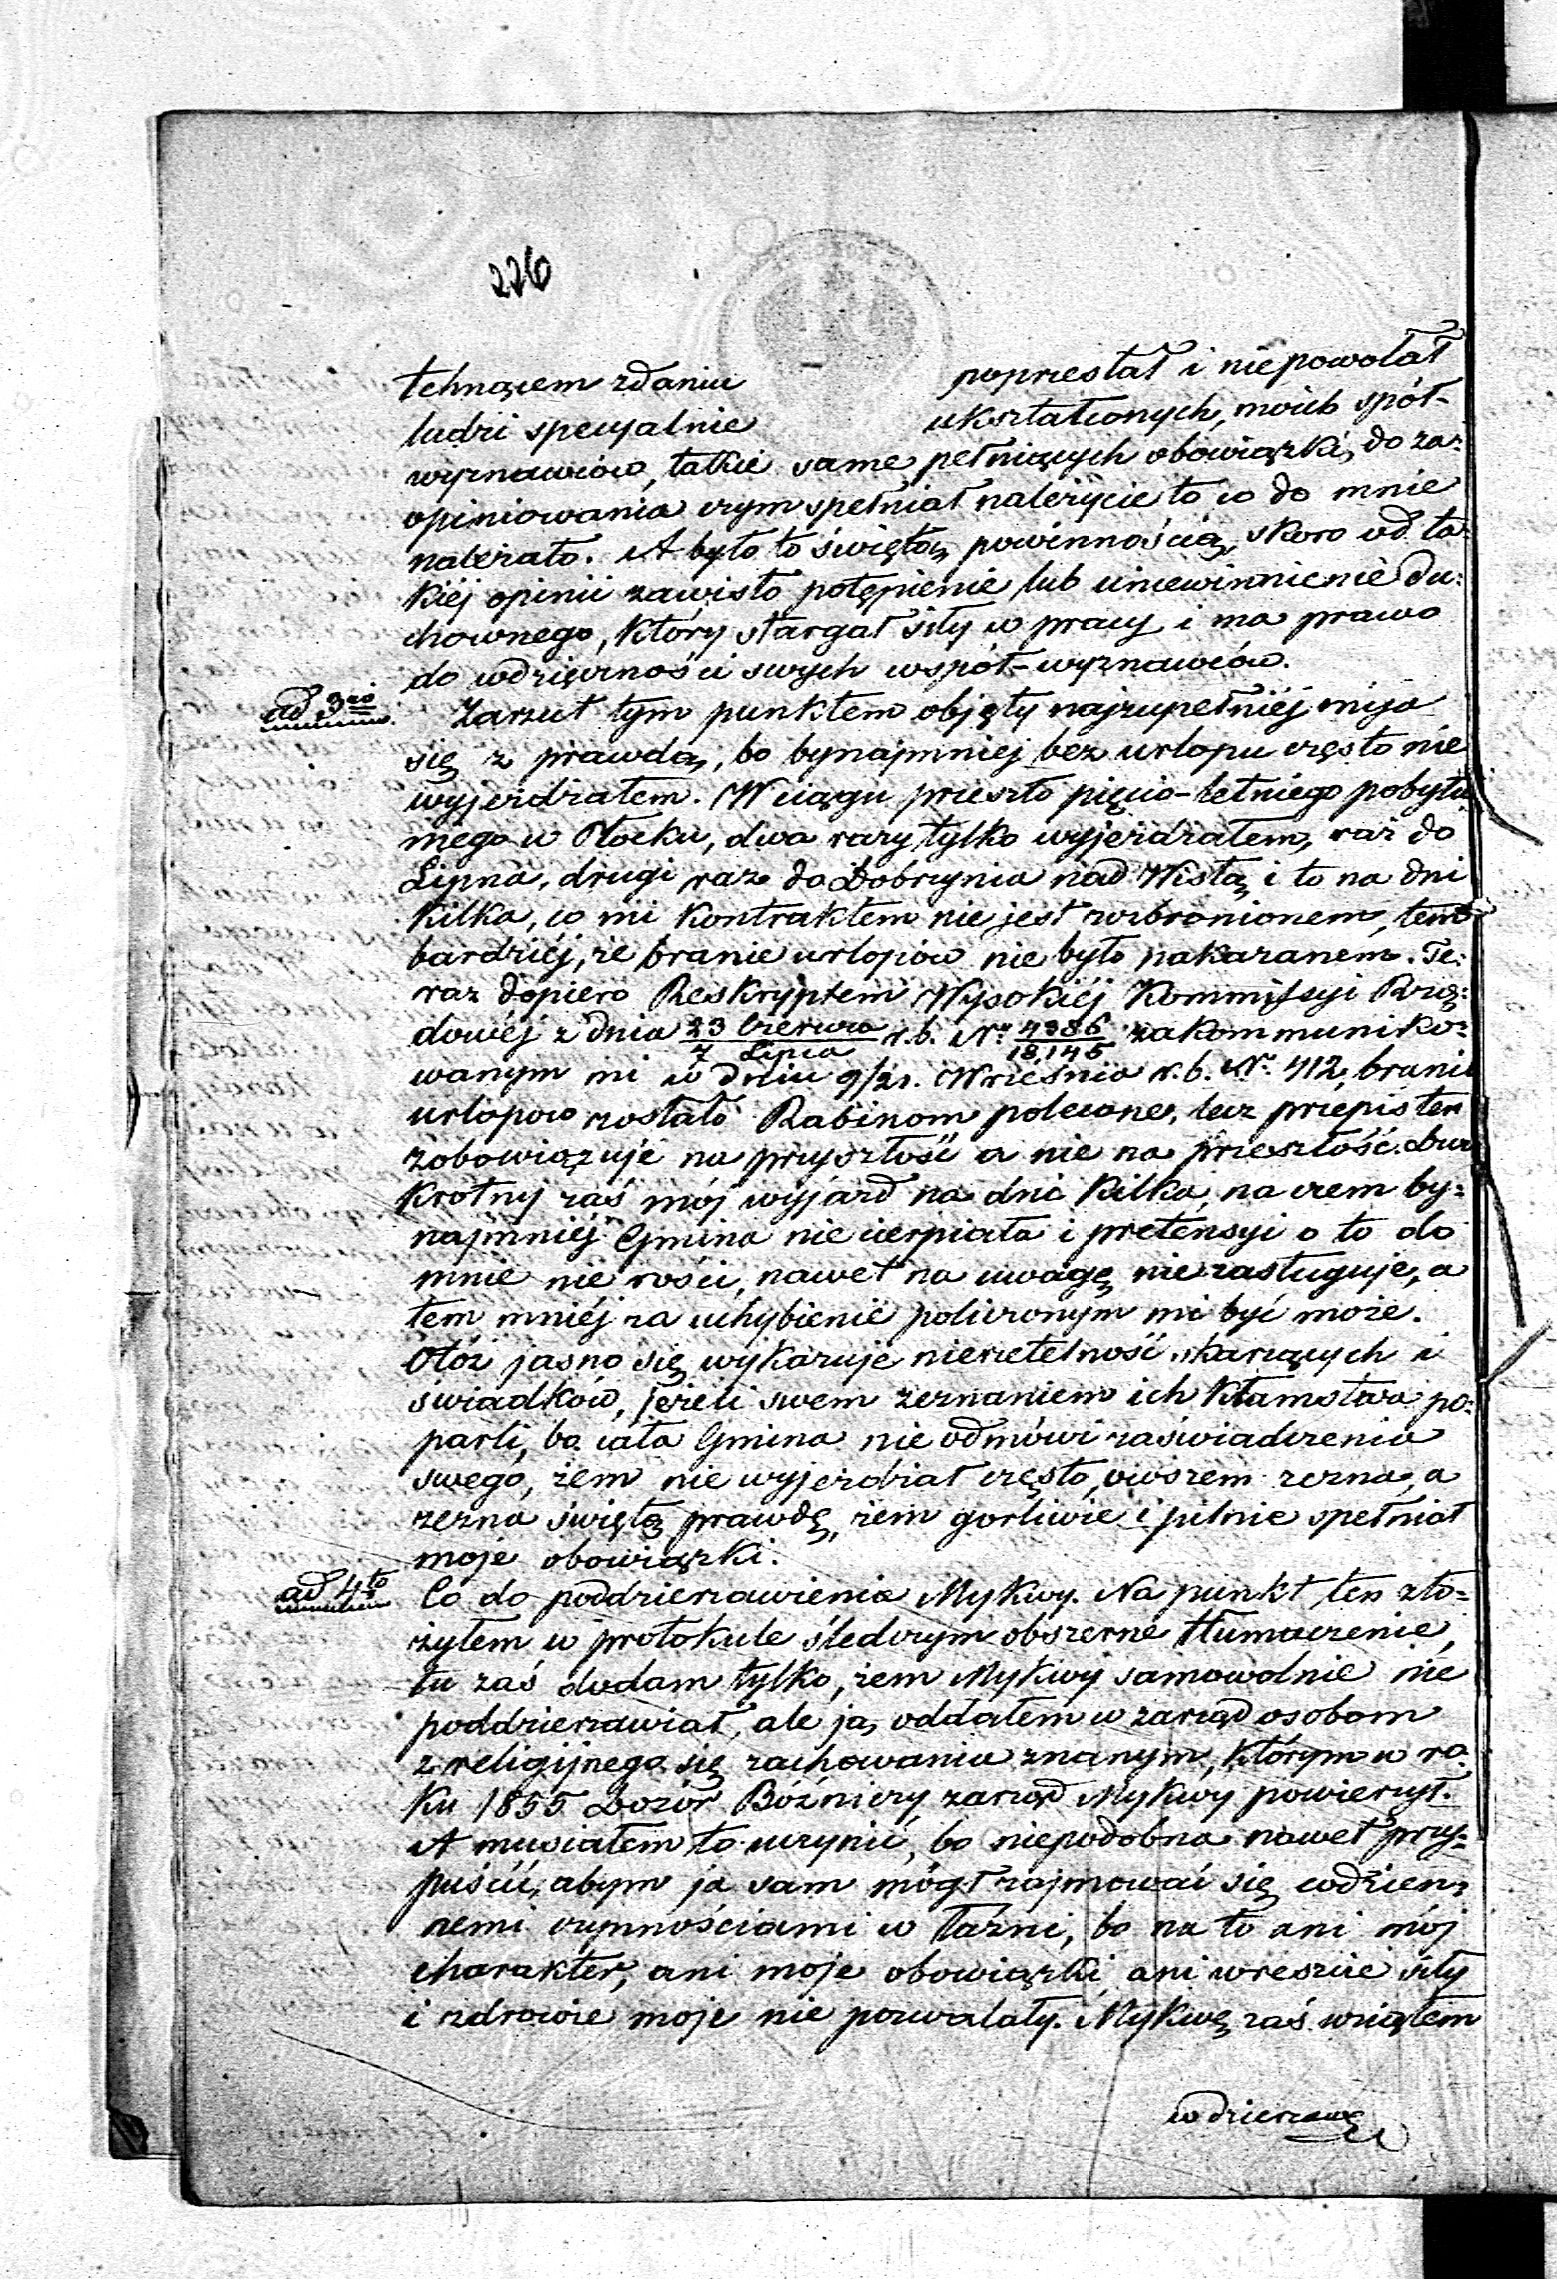 226
tchnącem zdaniu poprzestał i nie powołał
ludzi specyjalnie ukształconych, moich spół-
wyznawców, takie same pełniących obowiązki, do za:
opiniowania czym spełniał należycie to co do mnie
należało. A było to świętą powinnością, skoro od ta:
kiéj opinii zawisło potępienie lub uniewinnienie du:
chownego, który stargał siły w pracy i ma prawo
do wdzięczności swych współ-wyznawców.
ad 3cio Zarzut tym punktem objęty najzupełniéj mija
się z prawdą, bo bynajmniej bez urlopu często nie
wyjeżdżałem. W ciągu przeszło pięcio-letniego pobytu
mego w Płocku, dwa razy tylko wyjeżdżałem, raz do
Lipna, drugi raz do Dobrzynia nad Wisłą i to na dni
kilka, co mi kontraktem nie jest wzbronionem, tem
bardziéj, że branie urlopów nie było nakazanem. Te:
raz dopiero Reskryptem Wysokiéj Kommissyi Rzą:
dowéj z dnia 23 Czerwca/7 Lipca r. b. Nr 4386/18,145 zakommuniko:
wanym mi w dniu 9/21. Września r. b. Nr. 412, branie
urlopów zostało Rabinom polecone, lecz przepis ten
zobowiązuje na przyszłość a nie na przeszłość. Dwu
krotny zaś mój wyjazd na dni kilka, na czem by:
najmniéj Gmina nie cierpiała i pretensyi o to do
mnie nie rości, nawet na uwagę nie zasługuje, a
tem mniéj za uchybienie policzonym mi być może.
Otóż jasno się wykazuje nierzetelność skarżących i
świadków, jeżeli swem zeznaniem ich kłamstwa po:
parli, bo cała Gmina nie odmówi zaświadczenia
swego, żem nie wyjeżdżał często, owszem zezna, a
zezna świętą prawdę, żem gorliwie i pilnie spełniał
moje obowiązki.
ad 4to Co do poddzierżawienia Mykwy. Na punkt ten zło=
żyłem w protokule śledczym obszerne tłumaczenie,
tu zaś dodam tylko, żem Mykwy samowolnie nie
poddzierżawiał, ale ją oddałem w zarząd osobom
z religijnego się zachowania znanym, którym w ro:
ku 1855 Dozór Bóźniczy zarząd Mykwy powierzył.
A musiałem to uczynić, bo niepodobna nawet przy=
puścić, abym ja sam mógł zajmować się codzien=
nemi czynnościami w łaźni, bo na to ani mój
charakter, ani moje obowiązki ani wreszcie siły
i zdrowie moje nie pozwalały. Mykwę zaś wziąłem
w dzierżawę